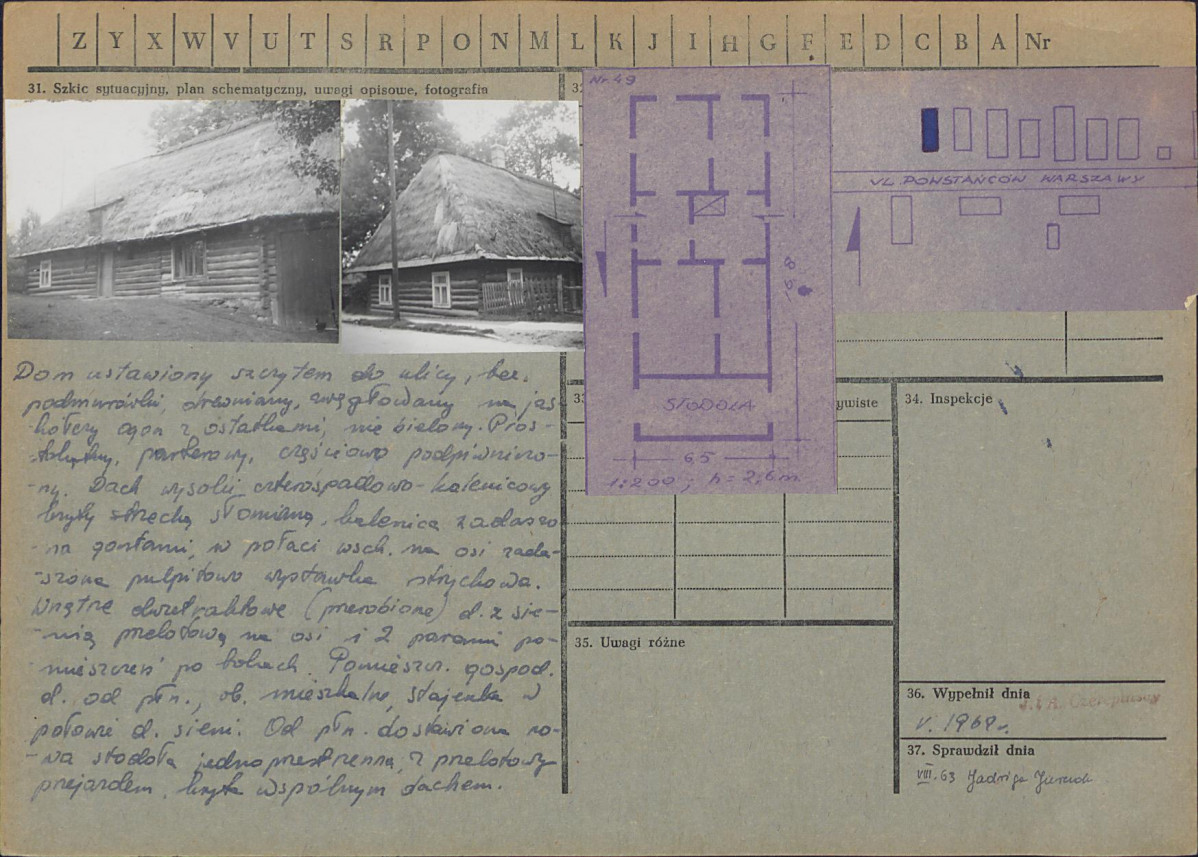 Z Y X W V U T S R P O N M L K J I H G F E D C B A Nr
31. Szkic sytuacyjny, plan schematyczny, uwagi opisowe, fotografia
32
Nr 49
UL. POWSTAŃCÓW WARSZAWY
18,
STODOŁA
6,5
1:200; h = 2,6 m
Dom ustawiony szczytem do ulicy, bez.
podmurówki, drewniany, zwęgłowany na jas-
kółczy ogon z ostatkami, nie bielony. Pros-
-tokątny, parterowy, częściowo podpiwniczo-
-ny. Dach wysoki czterospadowo-kalenicowy
kryty strzechą słomianą, kalenica zadaszo
-na gontami, w połaci wsch. na osi zada-
-szona pulpitowo wystawka strychowa.
Wnętrze dwutraktowe (przerobione) d. z sie-
-nią przelotową na osi i 2 parami po-
mieszczeń po bokach. Pomieszcz. gospod.
d. od płn., ob. mieszkalne, stajenka w
połowie d. sieni. Od płn. dostawiona no-
-wa stodoła jednoprzestrzenna, z przelotowym
przejazdem, kryta wspólnym dachem.
33
ywiste
34. Inspekcje
35. Uwagi różne
36. Wypełnił dnia
V. 1962 r.
37. Sprawdził dnia
VIII.63 Jadwiga